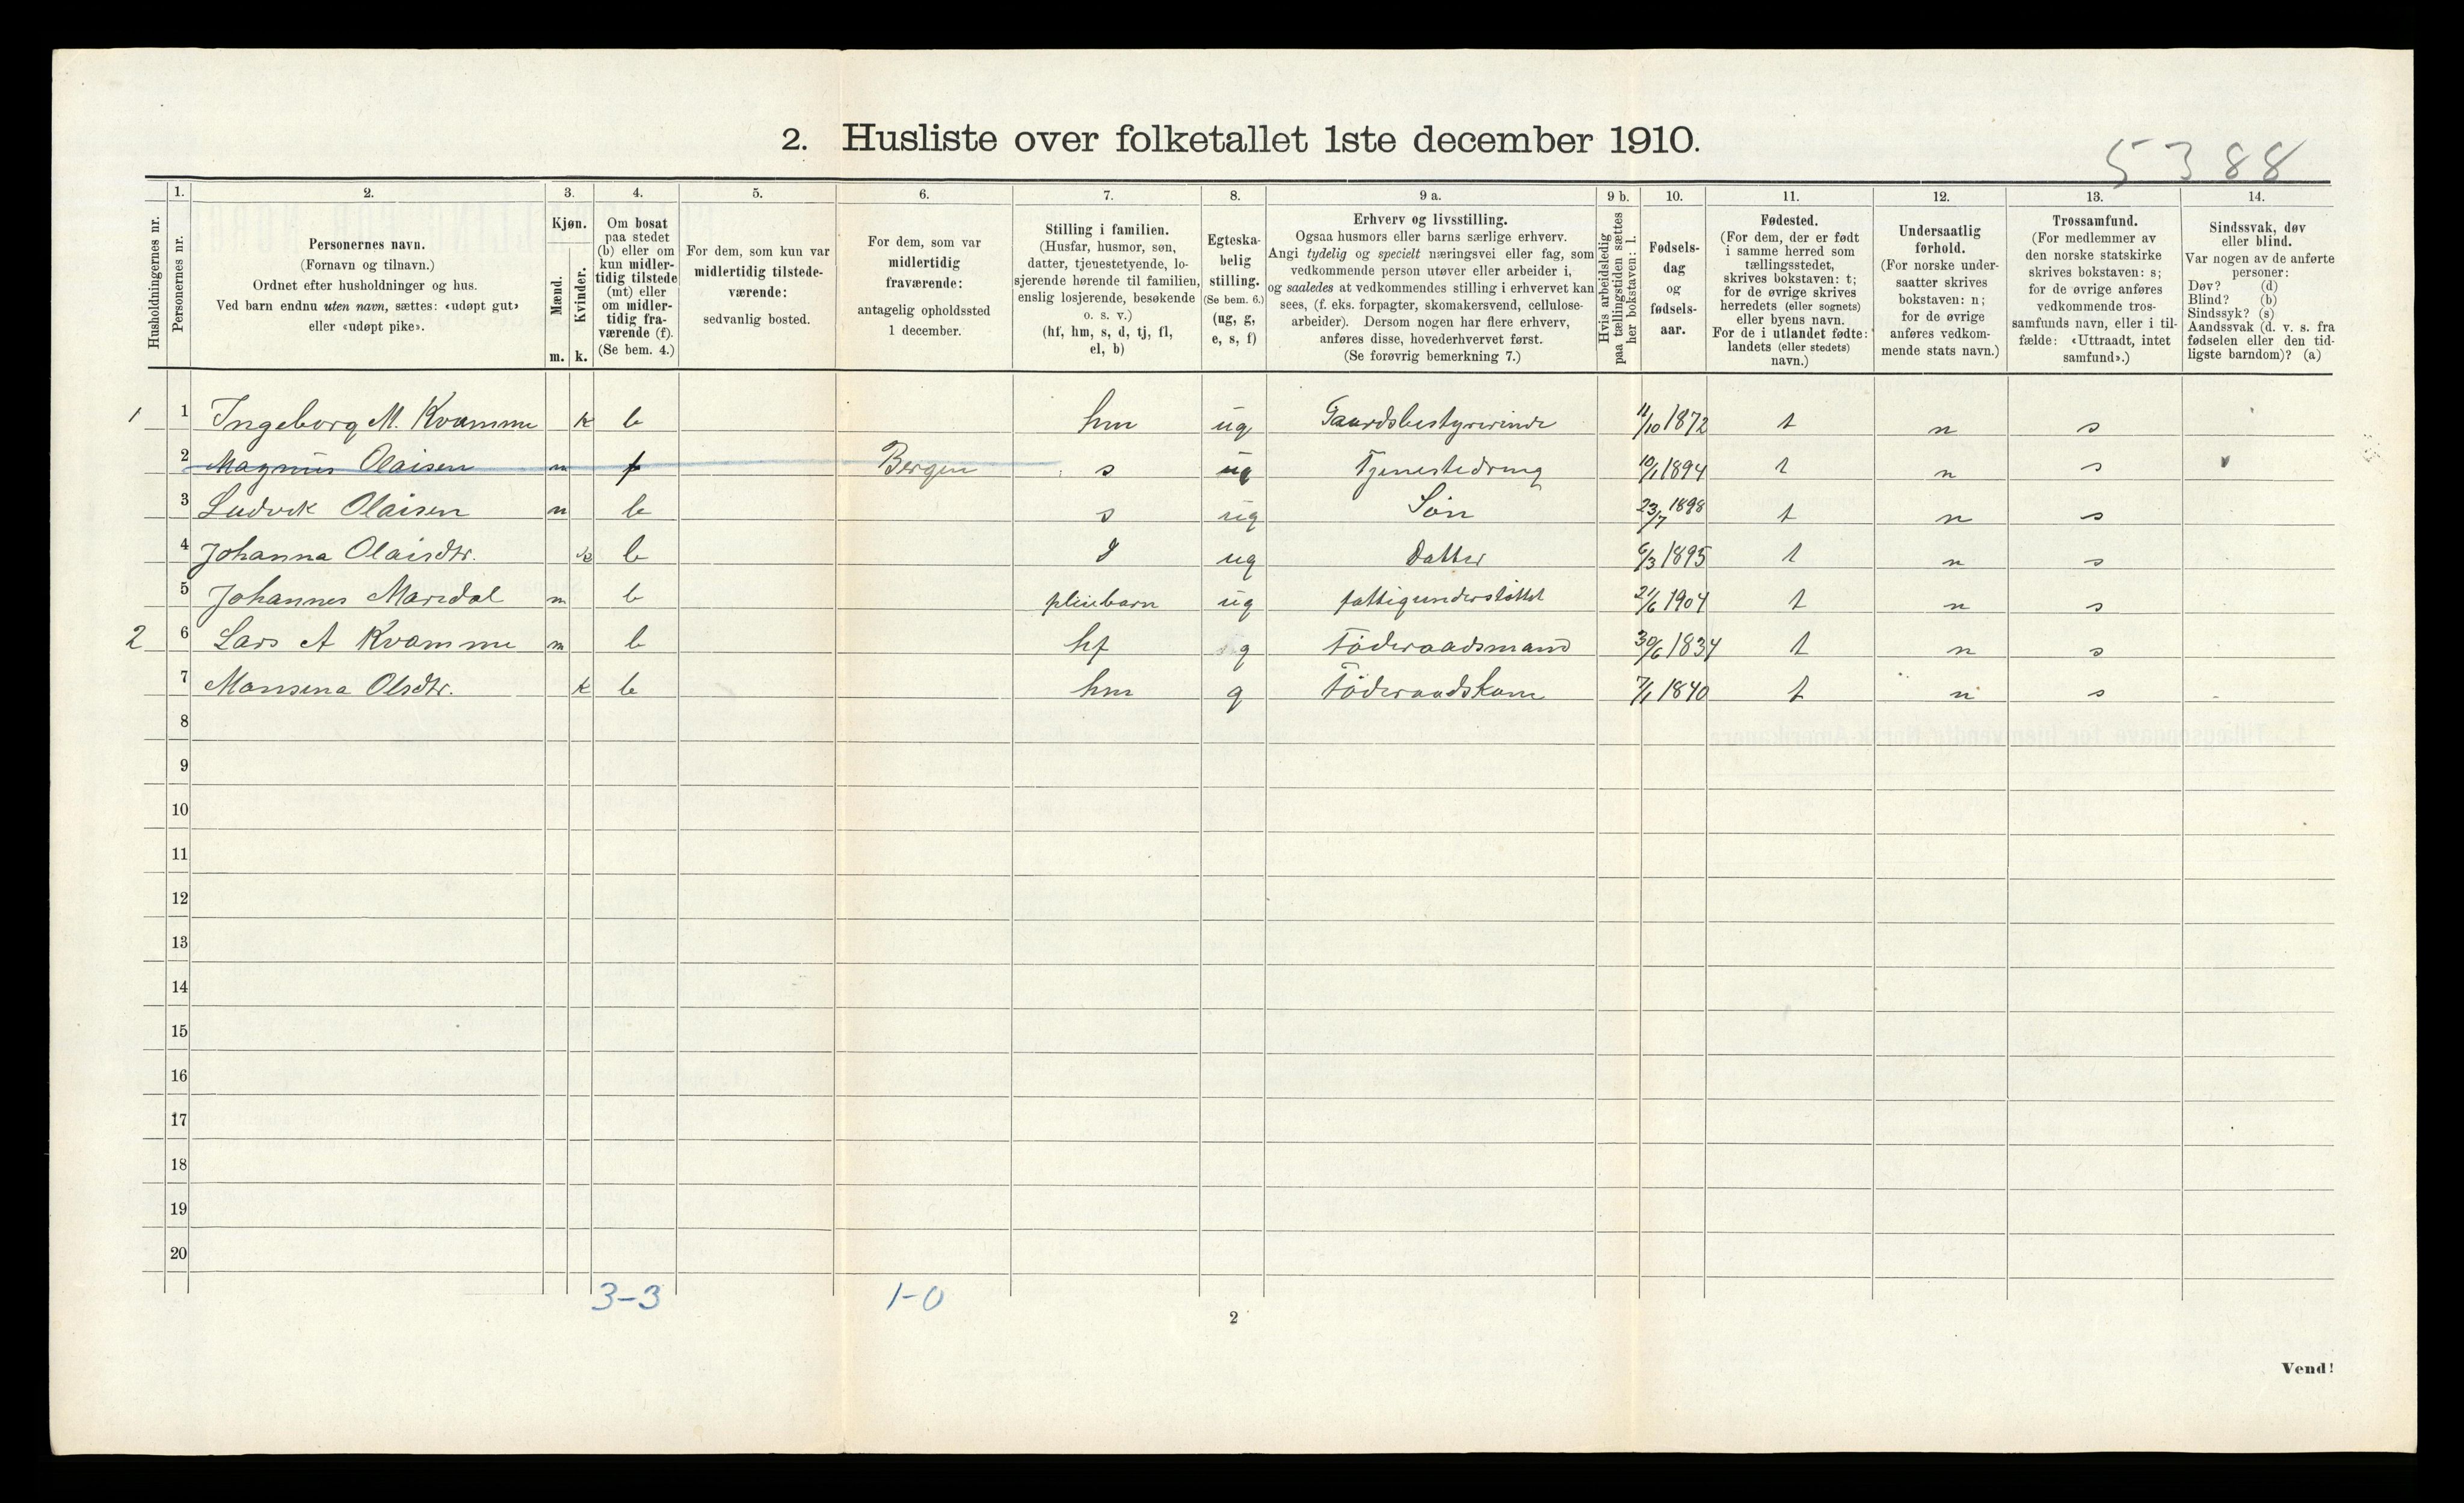 2. Husliste over folketallet 1ste december 1910.
5388
1. 2. 3. 4. 5. 6. 7. 8. 9 a. 9 b. 10. 11. 12. 13. 14.
Husholdningernes nr.
Personernes nr.
Personernes navn.
(Fornavn og tilnavn.)
Ordnet efter husholdninger og hus.
Ved barn endnu uten navn, sættes: «udøpt gut»
eller «udøpt pike».
Kjøn.
Mænd.
Kvinder.
m. k.
Om bosat
paa stedet
(b) eller om
kun midler-
tidig tilstede
(mt) eller
om midler-
tidig fra-
værende (f).
(Se bem. 4.)
For dem, som kun var
midlertidig tilstede-
værende:
sedvanlig bosted.
For dem, som var
midlertidig
fraværende:
antagelig opholdssted
1 december.
Stilling i familien.
(Husfar, husmor, søn,
datter, tjenestetyende, lo-
sjerende hørende til familien,
enslig losjerende, besøkende
o. s. v.)
(hf, hm, s, d, tj, fl,
el, b)
Egteska-
belig
stilling.
(Se bem. 6.)
(ug, g,
e, s, f)
Erhverv og livsstilling.
Ogsaa husmors eller barns særlige erhverv.
Angi tydelig og specielt næringsvei eller fag, som
vedkommende person utøver eller arbeider i,
og saaledes at vedkommendes stilling i erhvervet kan
sees, (f. eks. forpagter, skomakersvend, cellulose-
arbeider). Dersom nogen har flere erhverv,
anføres disse, hovederhvervet først.
(Se forøvrig bemerkning 7.)
Hvis arbeidsledig
paa tællingstiden sættes
her bokstaven: l.
Fødsels-
dag
og
fødsels-
aar.
Fødested.
(For dem, der er født
i samme herred som
tællingsstedet,
skrives bokstaven: t;
for de øvrige skrives
herredets (eller sognets)
eller byens navn.
For de i utlandet fødte:
landets (eller stedets)
navn.)
Undersaatlig
forhold.
(For norske under-
saatter skrives
bokstaven: n;
for de øvrige
anføres vedkom-
mende stats navn.)
Trossamfund.
(For medlemmer av
den norske statskirke
skrives bokstaven: s;
for de øvrige anføres
vedkommende tros-
samfunds navn, eller i til-
fælde: «Uttraadt, intet
samfund».)
Sindssvak, døv
eller blind.
Var nogen av de anførte
personer:
Døv? (d)
Blind? (b)
Sindssyk? (s)
Aandssvak (d. v. s. fra
fødselen eller den tid-
ligste barndom)? (a)
1 1 Ingeborg M. Kvamme k b hm ug Gaardsbestyrerinde 11/10 1872 t n s
2 Magnus Olaisen m f Bergen s ug Tjenestedreng 10/1 1894 t n s
3 Ludvik Olaisen m b s ug Søn 23/7 1898 t n s
4 Johanna Olaisdtr. k b d ug Datter 6/3 1895 t n s
5 Johannes Maredal m b pleiebarn ug fattigunderstøttet 21/6 1904 t n s
2 6 Lars A Kvamme m b hf g Føderaadsmand 30/6 1834 t n s
7 Mansena Olsdtr. k b hm g Føderaadskone 7/1 1840 t n s
8
9
10
11
12
13
14
15
16
17
18
19
20
3-3 1-0
2
Vend!